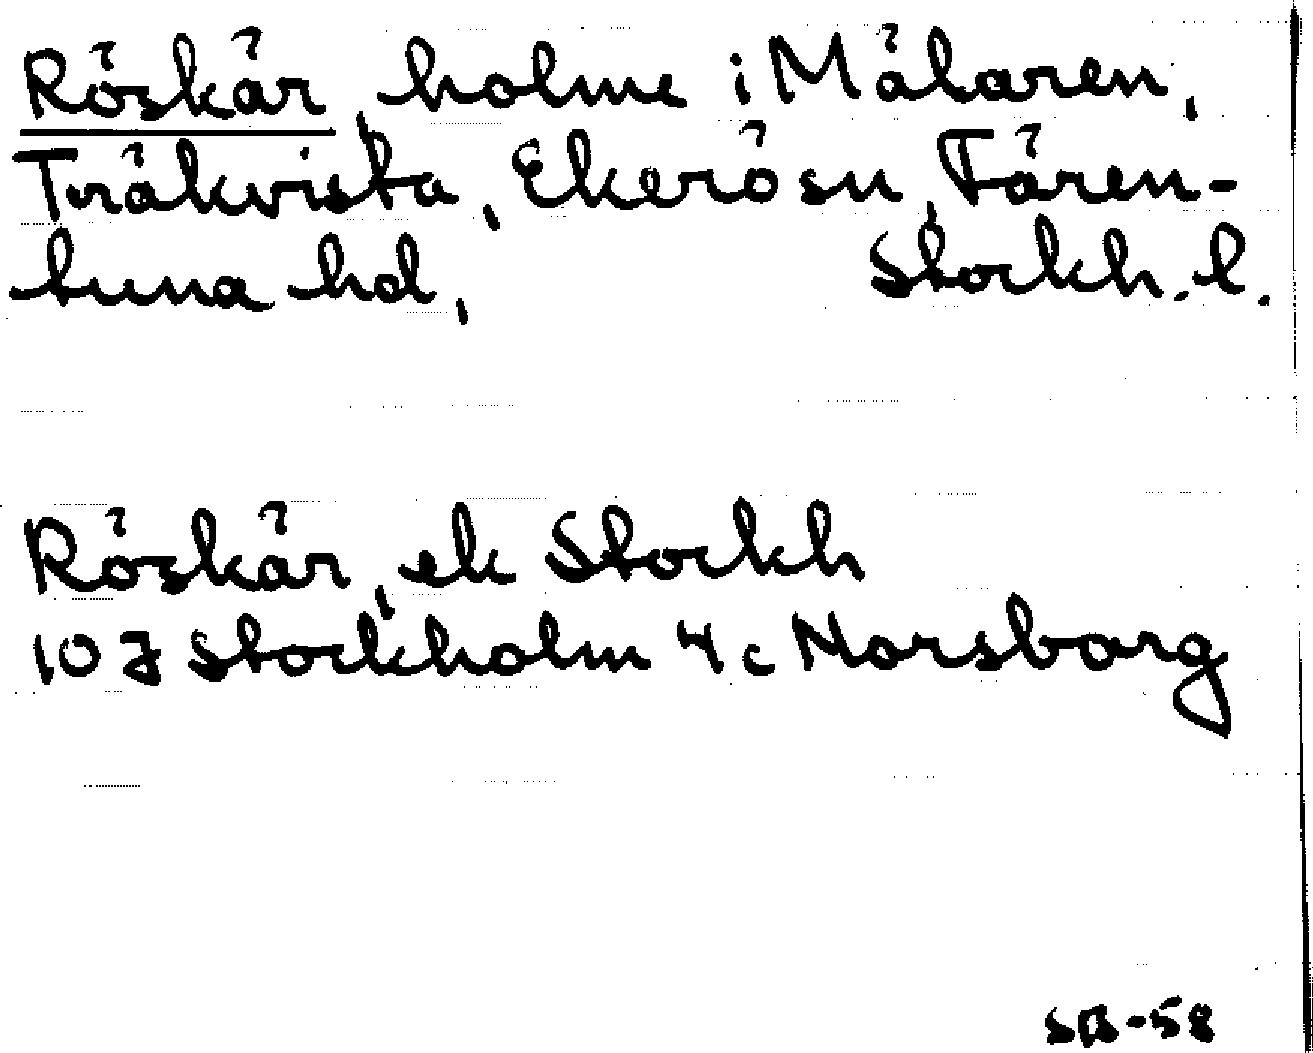 Röskär, holme i Mälaren,
Träkvista, Ekerö sn, Fären-
tuna hd, Stockh. l.
Röskär, ek Stockh
10 J Stockholm 4 c Norsborg
SB-58